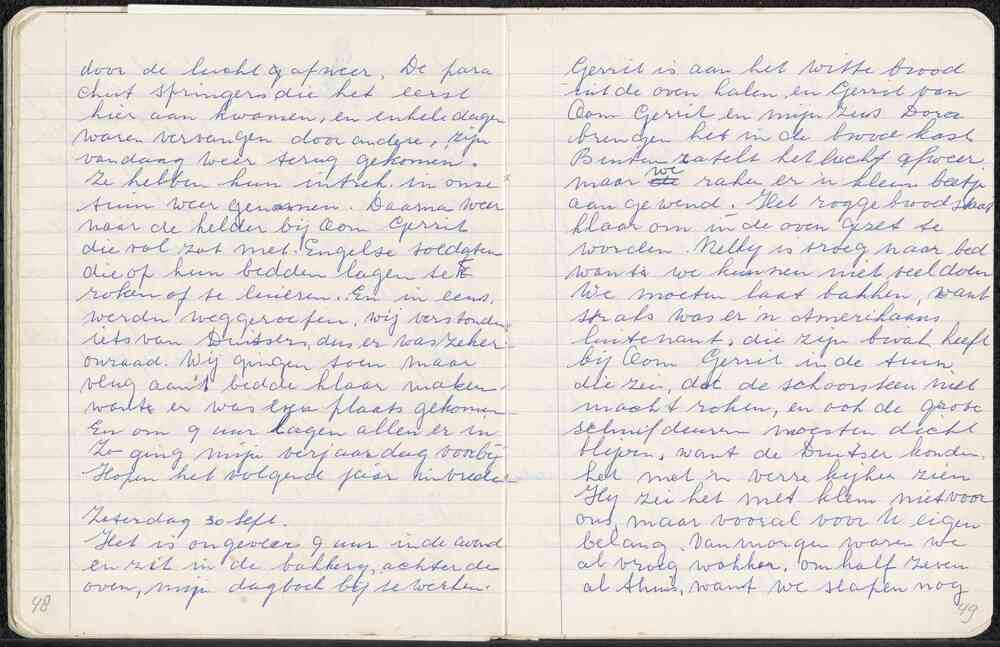 door de lucht afweer. De para
chut springers die het eerst
hier aan kwamen, en enkele dagen
waren vervangen door andere, zijn
vandaag weer terug gekomen.
Ze hebben hun intrek in onze
tuin weer genomen. Daarna weer
naar de kelder bij Oom Gerrit
die vol zat met Engelse soldaten
die of hun bedden lagen te
roken of te luieren. En in eens
werdn weggeroepen, wij verstonden
iets van Duitsers, dus er was zeker
onraad. Wij gingen toen maar
vlug aan't bedden klaar maken
want er was plaats gekomen
En om 9 uur lagen allen er in
Zo ging mijn verjaardag voorbij
Hopen het volgende jaar in vrede
Zaterdag 30 Sept.
Het is ongeveer 9 uur in de avond
en zit in de bakkerij, achter de
oven, mijn dagboek bij te werken.
48
Gerrit is aan het witte brood
uit de oven halen, en Gerrit van
Oom Gerrit en mijn zus Dora
brengen het in de brood kast
Buiten ratelt het lucht afweer
maar we raken er 'n klein beetje
aan gewend. Het roggebrood staat
klaar om in de oven gezet te
worden. Nelly is vroeg naar bed
want we kunnen niet veel doen
We moeten laat bakken, want
straks was er 'n Amerikaans
luitenant, die zijn bivak heeft
bij Oom Gerrit in de tuin
die zei, dat de schoorsteen niet
macht roken, en ook de grote
schuifdeuren moesten dicht
blijven, want de Duitser konden
het met 'n verre kijker zien
Hij zei het met klem niet voor
ons, maar vooral voor U eigen
belang. Van morgen waren we
al vroeg wakker, om half zeven
al thuis, want we slapen nog
49